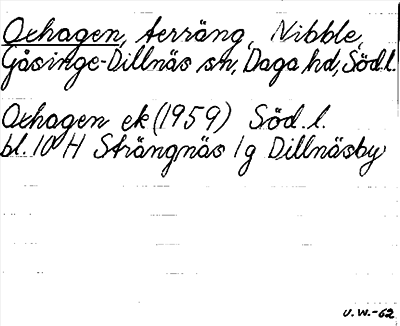 Oxhagen, terräng, Nibble,
Gåsinge-Dillnäs sn, Daga hd, Södl.
Oxhagen ek (1959) Söd.l.
bl. 10 H Strängnäs 1g Dillnäsby
U.W.-62